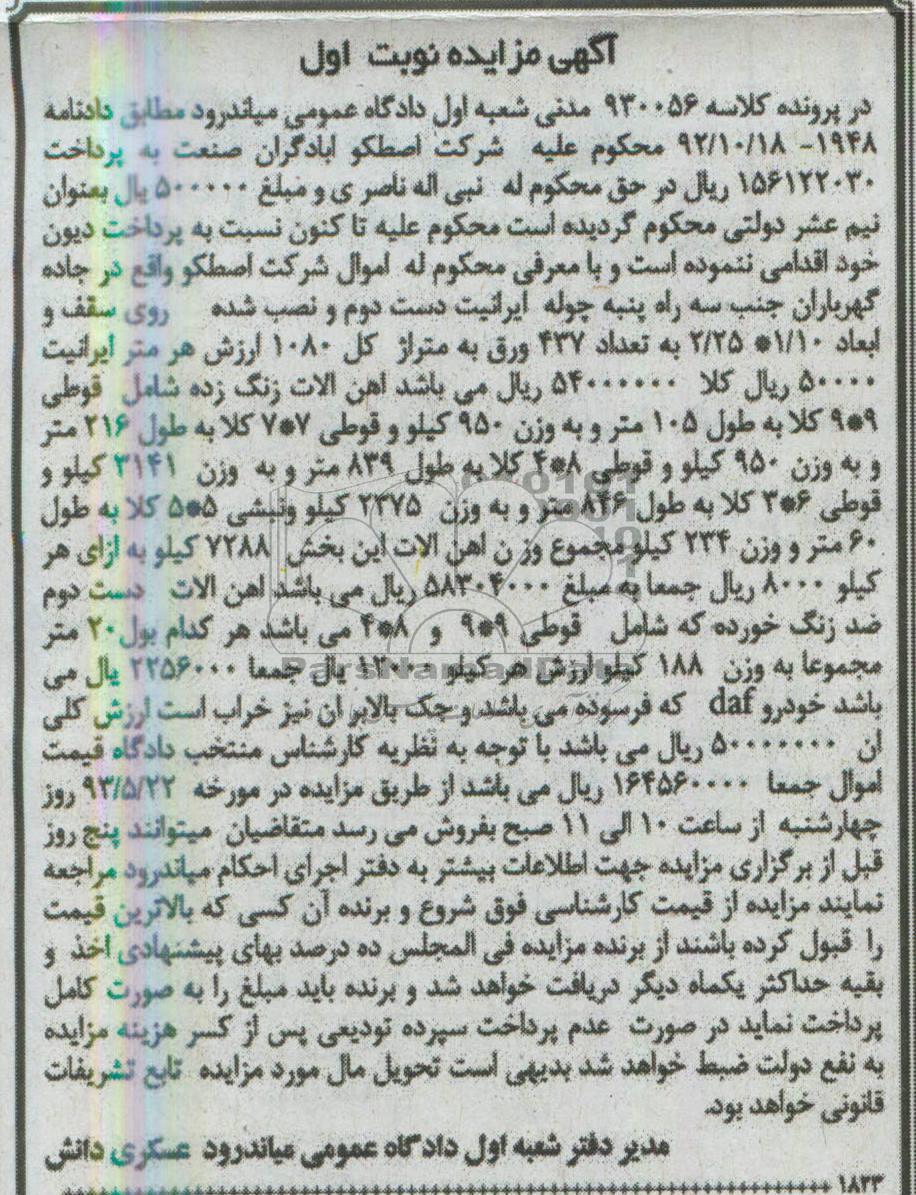 آگهی مزایده نوبت اول
در پرونده کلاسه ۹۳۰۰۵۶ مدنی شعبه اول دادگاه عمومی میاندرود مطابق دادنامه
۱۹۴۸- ۹۲/۱۰/۱۸ محکوم علیه شرکت اصطکو ابادگران صنعت به پرداخت
۱۵۶۱۲۲۰۳۰ ریال در حق محکوم له نبی اله ناصر ی و مبلغ ۵۰۰۰۰۰ یال بعنوان
نیم عشر دولتی محکوم گردیده است محکوم علیه تا کنون نسبت به پرداخت دیون
خود اقدامی ننموده است و با معرفی محکوم له اموال شرکت اصطکو واقع در جاده
گهرباران جنب سه راه پنبه جوله ایرانیت دست دوم و نصب شده روی سقف و
ابعاد ۱/۱۰* ۲/۲۵ به تعداد ۴۳۷ ورق به متراژ کل ۱۰۸۰ ارزش هر متر ایرانیت
۵۰۰۰۰ ریال کلا ۵۴۰۰۰۰۰۰ ریال می باشد اهن الات زنگ زده شامل قوطی
۹*۹ کلا به طول ۱۰۵ متر و به وزن ۹۵۰ کیلو و قوطی ۷*۷ کلا به طول ۲۱۶ متر
و به وزن ۹۵۰ کیلو و قوطی ۸*۴ کلا به طول ۸۳۹ متر و به وزن ۳۱۴۱ کیلو و
قوطی ۶*۳ کلا به طول ۸۴۶ متر و به وزن ۲۳۷۵ کیلو ونبشی ۵*۵ کلا به طول
۶۰ متر و وزن ۲۳۴ کیلو مجموع وز ن اهن الات این بخش ۷۲۸۸ کیلو به ازای هر
کیلو ۸۰۰۰ ریال جمعا به مبلغ ۵۸۳۰۴۰۰۰ ریال می باشد اهن الات دست دوم
ضد زنگ خورده که شامل قوطی ۹*۹ و ۸*۴ می باشد هر کدام بول ۲۰ متر
مجموعا به وزن ۱۸۸ کیلو ارزش هر کیلو ۱۲۰۰۰ یال جمعا ۲۲۵۶۰۰۰ یال می
باشد خودرو daf که فرسوده می باشد و جک بالابر ان نیز خراب است ارزش کلی
ان ۵۰۰۰۰۰۰۰ ریال می باشد با توجه به نظریه کارشناس منتخب دادگاه قیمت
اموال جمعا ۱۶۴۵۶۰۰۰۰ ریال می باشد از طریق مزایده در مورخه ۹۳/۵/۲۲ روز
چهارشنبه از ساعت ۱۰ الی ۱۱ صبح بفروش می رسد متقاضیان میتوانند پنج روز
قبل از برگزاری مزایده جهت اطلاعات بیشتر به دفتر اجرای احکام میاندرود مراجعه
نمایند مزایده از قیمت کارشناسی فوق شروع و برنده آن کسی که بالاترین قیمت
را قبول کرده باشند از برنده مزایده فی المجلس ده درصد بهای پیشنهادی اخذ و
بقیه حداکثر یکماه دیگر دریافت خواهد شد و برنده باید مبلغ را به صورت کامل
پرداخت نماید در صورت عدم پرداخت سپرده تودیعی پس از کسر هزینه مزایده
به نفع دولت ضبط خواهد شد بدیهی است تحویل مال مورد مزایده تابع تشریفات
قانونی خواهد بود.
مدیر دفتر شعبه اول دادگاه عمومی میاندرود عسکری دانش
۱۸۲۳
ParsNamadData